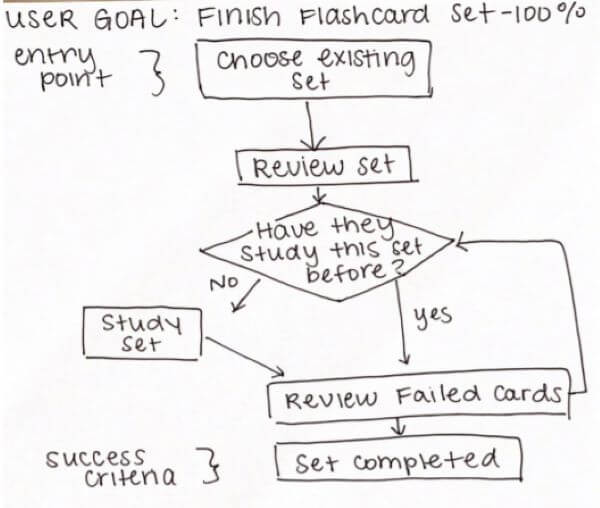 USER GOAL: Finish Flashcard Set-100%
entry
point
choose existing
set
Review set
Have they
study this set
before?
NO
yes
study
set
Review Failed cards
success
criteria
Set completed